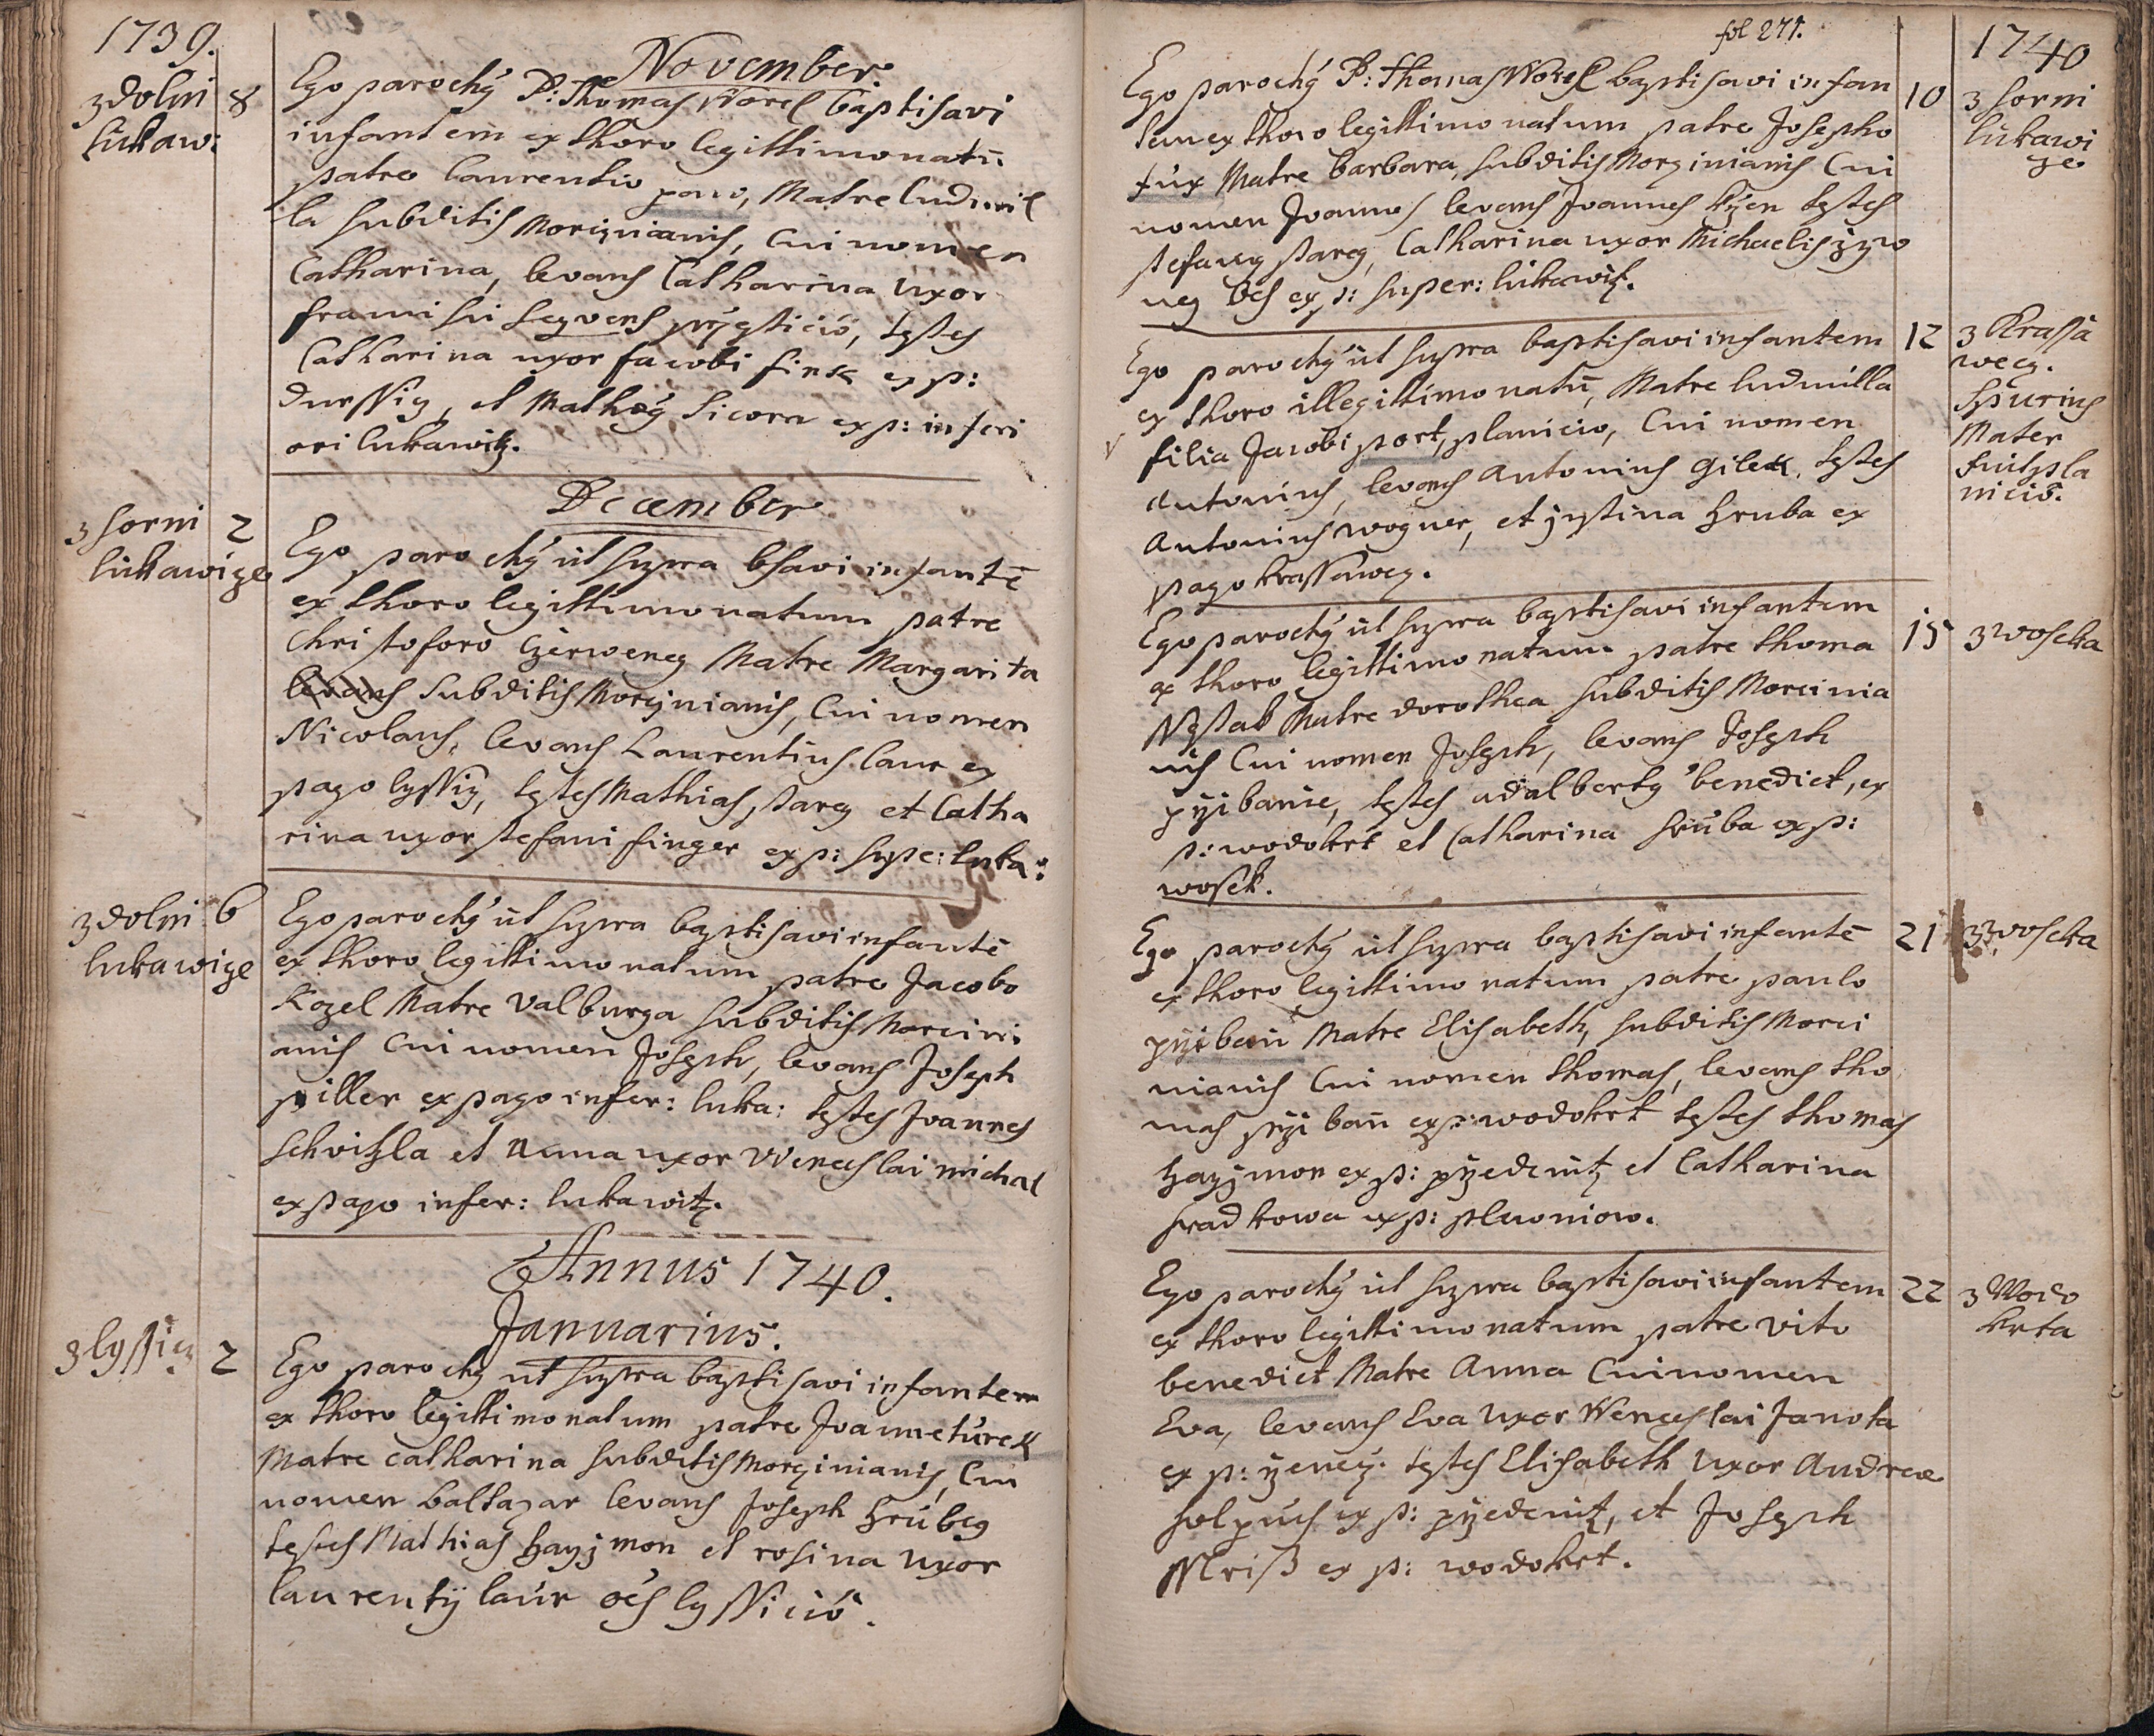 1739.
November
z dolni 8
lukaw:
Ego parochý P: Thomas Worel baptisavi
infantem ex thoro legittimo natū
patre Laurentio paw, Matre Ludmil
la subditis Morzinianis, Cui nomen
Catharina, levans Catharina uxor
Catharina uxor Jacobi fink ex p:
et Mathéý Sicora ex p: inferi
ori lukawitz.
December
z horni 2
lukawize
Ego parochý ut supra bsavi infantē
ex thoro legittimo natum patre
Christoforo Czerweney Matre Margarita
levans subditis Morzinianis, Cui nomen
Nicolaus, levans Laurentius laur ex
pago lyssiz, testes Mathias starey et Catha
rina uxor stefani finger ex p: supe: luka:
z dolni 6
lukawize
Ego parochý ut supra baptisavi infantē
ex thoro legittimo natum patre Jacobo
Kozel Matre Valburga subditis Morcini
anis Cui nomen Joseph, levans Joseph
piller ex pago infer: luka: testes Joannes
schvitzla et Anna uxor Wenceslai michal
ex pago infer: lukawitz.
Annus 1740.
Januarius.
z lyssicz 2
Ego parochý ut supra baptisavi infantem
ex thoro legittimo natum patre Joanne turek
Matre catharina subditis Morzinianis, Cui
nomen baltazar levans Joseph hrubey
testes Mathias hayjmon et rosina uxor
laurentÿ laur oēs lyssiciō.
fol 271.
1740
Ego parochý P: Thomas Worel baptisavi infan
tem ex thoro legittimo natum patre Josepho
fux Matre barbara, subditis Morzinianis Cui
nomen Joannes levans Joannes testes
stefaney starey, Catharina uxor Michaelis zyw
ney oēs ex p: super: lukawitz.
10 z horni
lukawi
ze
Ego parochý ut supra baptisavi infantem
ex thoro illegittimo natū, Matre ludmilla
filia Jacobi port, planicio, Cui nomen
Antonius, levans Antonius Gilek, testes
Antonius wogner, et justina hruba ex
pago krassowey.
12 z Krasso
wecz.
Spurius
Mater
fuit pla
niciō.
Ego parochý ut supra baptisavi infantem
ex thoro legittimo natum patre thoma
Matre dorothea subditis Morcinia
nis Cui nomen Joseph, levans Joseph
testes adalbertý benedict, ex
p: wodokrt et Catharina hruba ex p:
wosek.
15 z woseka
Ego parochý ut supra baptisavi infantē
ex thoro legittimo natum patre paulo
przi bań Matre Elisabeth, subditis Morci
nianis Cui nomen thomas, levans tho
mas przi bań ex p: wodokrt testes thomas
hayjmon ex p: przedenitz et Catharina
hradkowa ex p: pluoniow.
21 z woseka
Ego parochý ut supra baptisavi infantem
ex thoro legittimo natum patre vito
benedict Matre Anna Cui nomen
Eva, levans Eva Uxor Wenceslai Janota
testes Elisabeth Uxor Andreæ
ex p: przedenitz, et Joseph
ex p: wodokrt.
22 z Wodo
krta